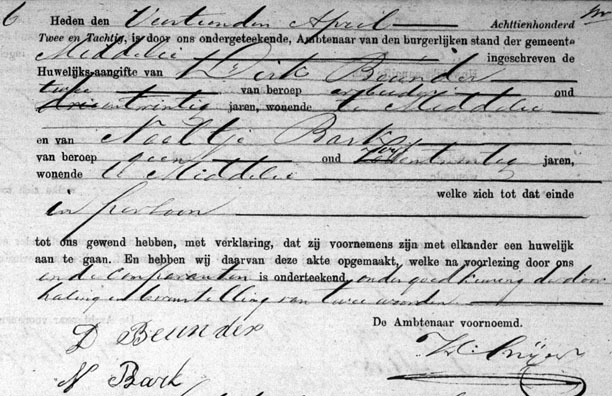 6 Heden den Veertienden April Achttienhonderd
Twee en Tachtig, is door ons ondergeteekende, Ambtenaar van den burgerlijken stand der gemeente
Middelie ingeschreven de
Huwelijks-aangifte van Dirk Beunder
twee van beroep arbeider oud
drieentwintig jaren, wonende te Middelie
en van Naaltje Bark
van beroep geen oud entwintig jaren,
wonende te Middelie
welke zich tot dat einde
in persoon
tot ons gewend hebben, met verklaring, dat zij voornemens zijn met elkander een huwelijk
aan te gaan. En hebben wij daarvan deze akte opgemaakt, welke na voorlezing door ons
en de comparanten is onderteekend, onder goedkeuring de door
haling en bovenstelling van twee woorden
De Ambtenaar voornoemd.
D Beunder
N Bark